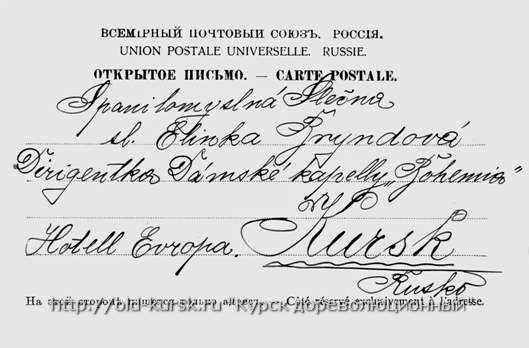 ВСЕМІРНЫЙ ПОЧТОВЫЙ СОЮЗЪ. РОССІЯ.
UNION POSTALE UNIVERSELLE. RUSSIE.
ОТКРЫТОЕ ПИСЬМО. — CARTE POSTALE.
Spanilomyslná Slečna
sl. Elinka Bryndová
Dirigentka Dámské kapelly „Bohemia"
Hotell Evropa. Kursk
Rusko
На этой сторонѣ пишется только адресъ. — Côté réservé exclusivement à l'adresse.
http://old-kursk.ru/ Курск дореволюционный